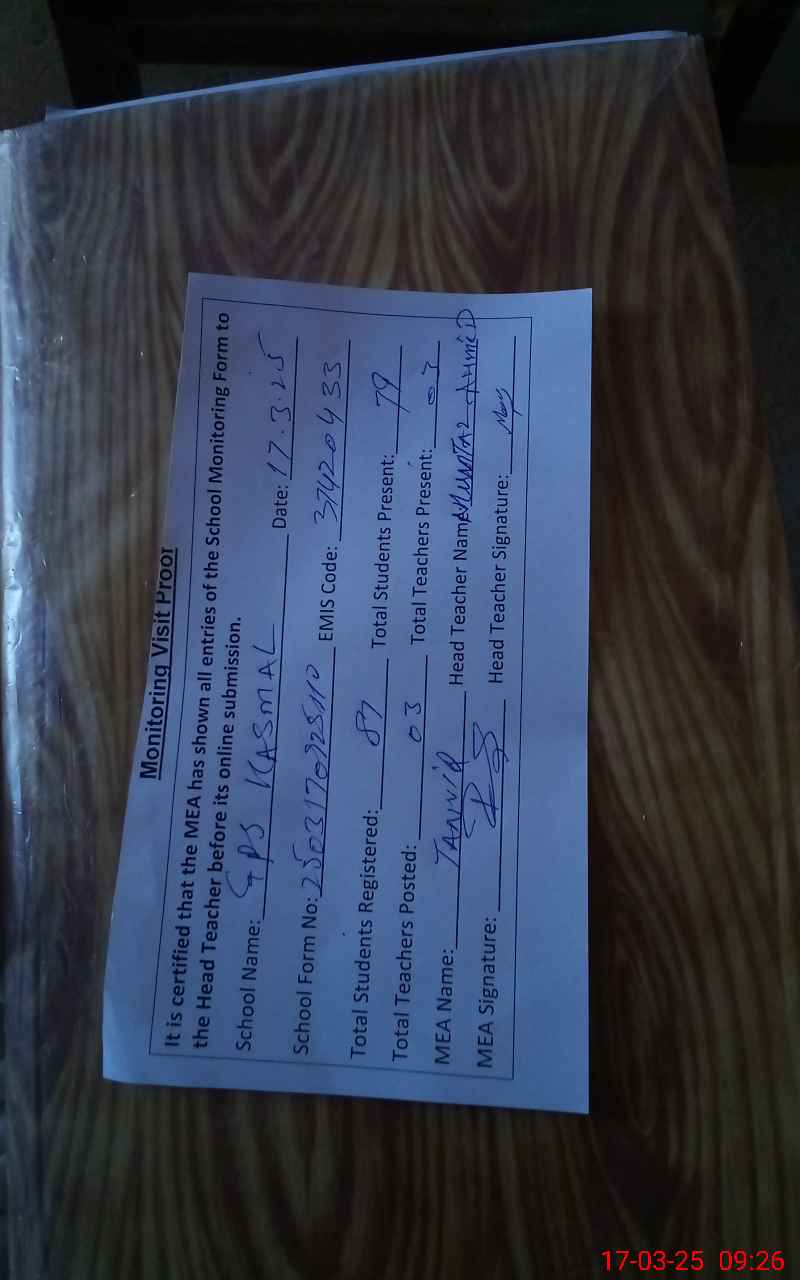 Monitoring Visit Proof
It is certified that the MEA has shown all entries of the School Monitoring Form to
the Head Teacher before its online submission.
School Name: GPS KASMAL Date: 17.3.25
School Form No: EMIS Code: 37420433
Total Students Registered: 87 Total Students Present: 79
Total Teachers Posted: 03 Total Teachers Present: 03
MEA Name: TANVIR Head Teacher Name: MUMTAZ AHMED
MEA Signature: Head Teacher Signature:
17-03-25 09:26